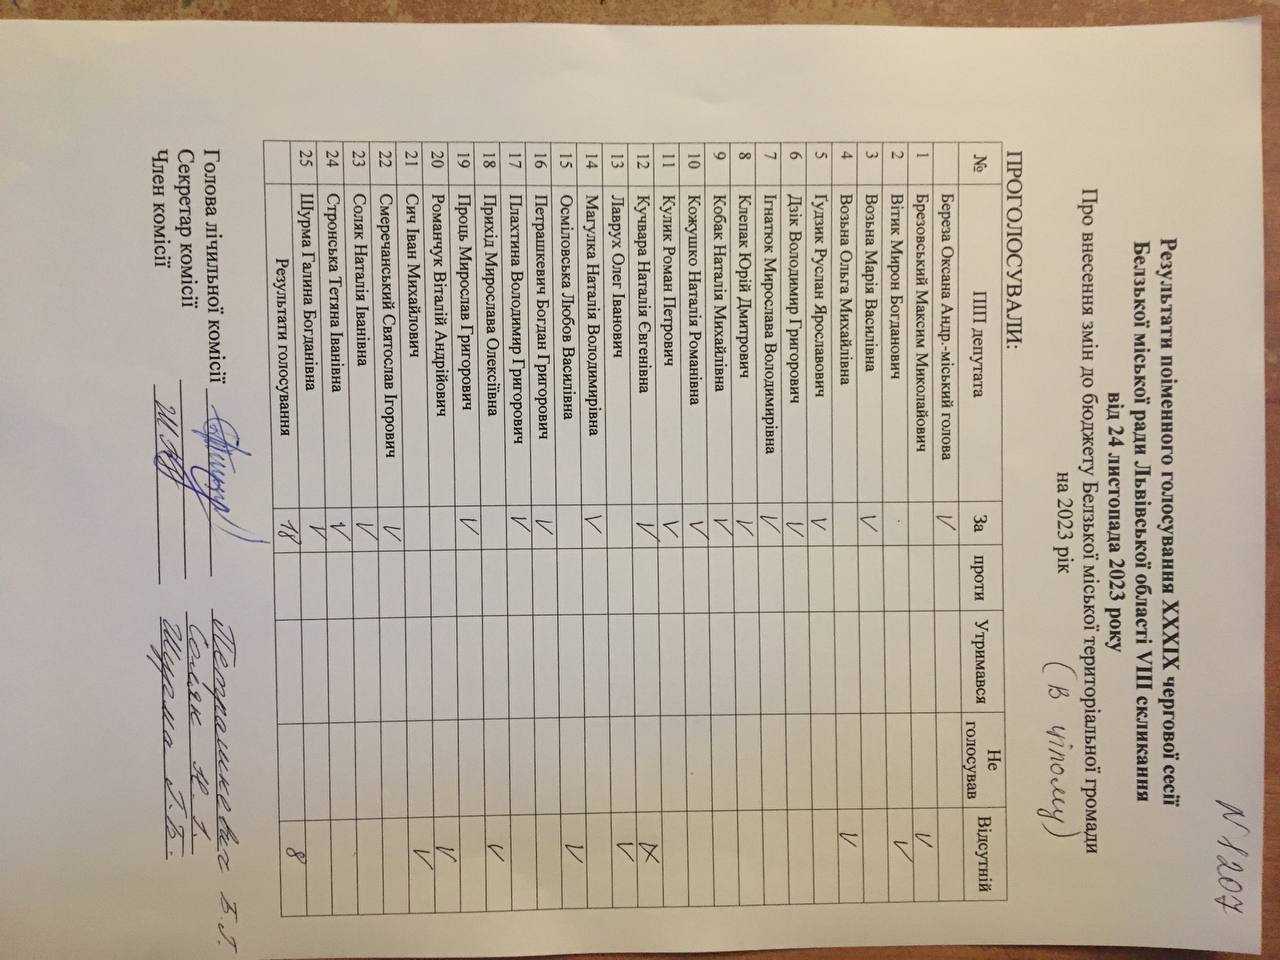 N 1207
Результати поіменного голосування XXXIX чергової сесії
Белзької міської ради Львівської області VIII скликання
від 24 листопада 2023 року
Про внесення змін до бюджету Белзької міської територіальної громади
на 2023 рік (в цілому)
ПРОГОЛОСУВАЛИ:
№ ПІП депутата За проти Утримався Не голосував Відсутній
Береза Оксана Андр.-міський голова V
1 Брезовський Максим Миколайович V
2 Вітик Мирон Богданович V
3 Возьна Марія Василівна V
4 Возьна Ольга Михайлівна V
5 Ґудзик Руслан Ярославович V
6 Дзік Володимир Григорович V
7 Ігнатюк Мирослава Володимирівна V
8 Клепак Юрій Дмитрович V
9 Кобак Наталія Михайлівна V
10 Кожушко Наталія Романівна V
11 Кулик Роман Петрович V
12 Кучвара Наталія Євгенівна V
13 Лаврух Олег Іванович V
14 Магулка Наталія Володимирівна V
15 Осміловська Любов Василівна V
16 Петрашкевич Богдан Григорович V
17 Плахтина Володимир Григорович V
18 Прихід Мирослава Олексіївна V
19 Проць Мирослав Григорович V
20 Романчук Віталій Андрійович V
21 Сич Іван Михайлович V
22 Смеречанський Святослав Ігорович V
23 Соляк Наталія Іванівна V
24 Стронська Тетяна Іванівна V
25 Шурма Галина Богданівна V
Результати голосування 18 8
Голова лічильної комісії Петрашкевич Б.Г.
Секретар комісії Соляк Н.І.
Член комісії Шурма Г.Б.